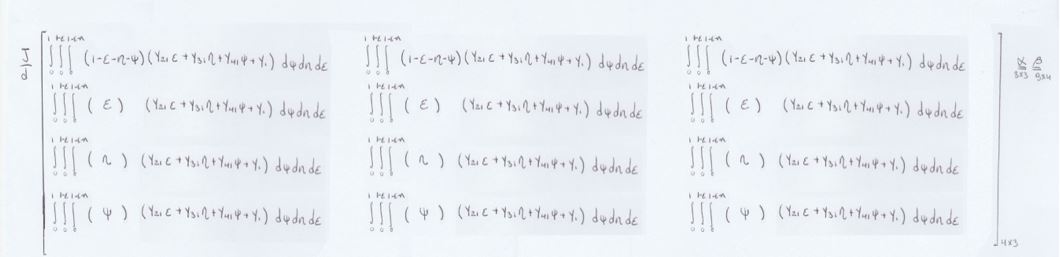 J/d [ ∫₀¹∫₀^{1-ε}∫₀^{1-ε-n} (1-ε-η-ψ)(Y₂₁ε+Y₃₁η+Y₄₁ψ+Y₁) dψdηdε ∫₀¹∫₀^{1-ε}∫₀^{1-ε-n} (1-ε-η-ψ)(Y₂₁ε+Y₃₁η+Y₄₁ψ+Y₁) dψdηdε ∫₀¹∫₀^{1-ε}∫₀^{1-ε-n} (1-ε-η-ψ)(Y₂₁ε+Y₃₁η+Y₄₁ψ+Y₁) dψdηdε
∫₀¹∫₀^{1-ε}∫₀^{1-ε-n} (ε) (Y₂₁ε+Y₃₁η+Y₄₁ψ+Y₁) dψdηdε ∫₀¹∫₀^{1-ε}∫₀^{1-ε-n} (ε) (Y₂₁ε+Y₃₁η+Y₄₁ψ+Y₁) dψdηdε ∫₀¹∫₀^{1-ε}∫₀^{1-ε-n} (ε) (Y₂₁ε+Y₃₁η+Y₄₁ψ+Y₁) dψdηdε
∫₀¹∫₀^{1-ε}∫₀^{1-ε-n} (η) (Y₂₁ε+Y₃₁η+Y₄₁ψ+Y₁) dψdηdε ∫₀¹∫₀^{1-ε}∫₀^{1-ε-n} (η) (Y₂₁ε+Y₃₁η+Y₄₁ψ+Y₁) dψdηdε ∫₀¹∫₀^{1-ε}∫₀^{1-ε-n} (η) (Y₂₁ε+Y₃₁η+Y₄₁ψ+Y₁) dψdηdε
∫₀¹∫₀^{1-ε}∫₀^{1-ε-n} (ψ) (Y₂₁ε+Y₃₁η+Y₄₁ψ+Y₁) dψdηdε ∫₀¹∫₀^{1-ε}∫₀^{1-ε-n} (ψ) (Y₂₁ε+Y₃₁η+Y₄₁ψ+Y₁) dψdηdε ∫₀¹∫₀^{1-ε}∫₀^{1-ε-n} (ψ) (Y₂₁ε+Y₃₁η+Y₄₁ψ+Y₁) dψdηdε ]
4x3
3x3 3x4